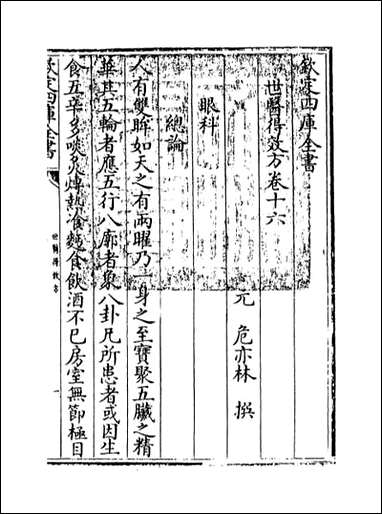 欽定四庫全書
世醫得效方卷十六
元 危亦林 撰
眼科
總論
人有雙眸如天之有兩曜乃一身之至寶聚五臟之精
華其五輪者應五行八廓者象八卦凡所患者或因生
食五辛多啖炙煿熱飡麵食飲酒不已房室無節極目
欽定四庫全書
世醫得效方
一